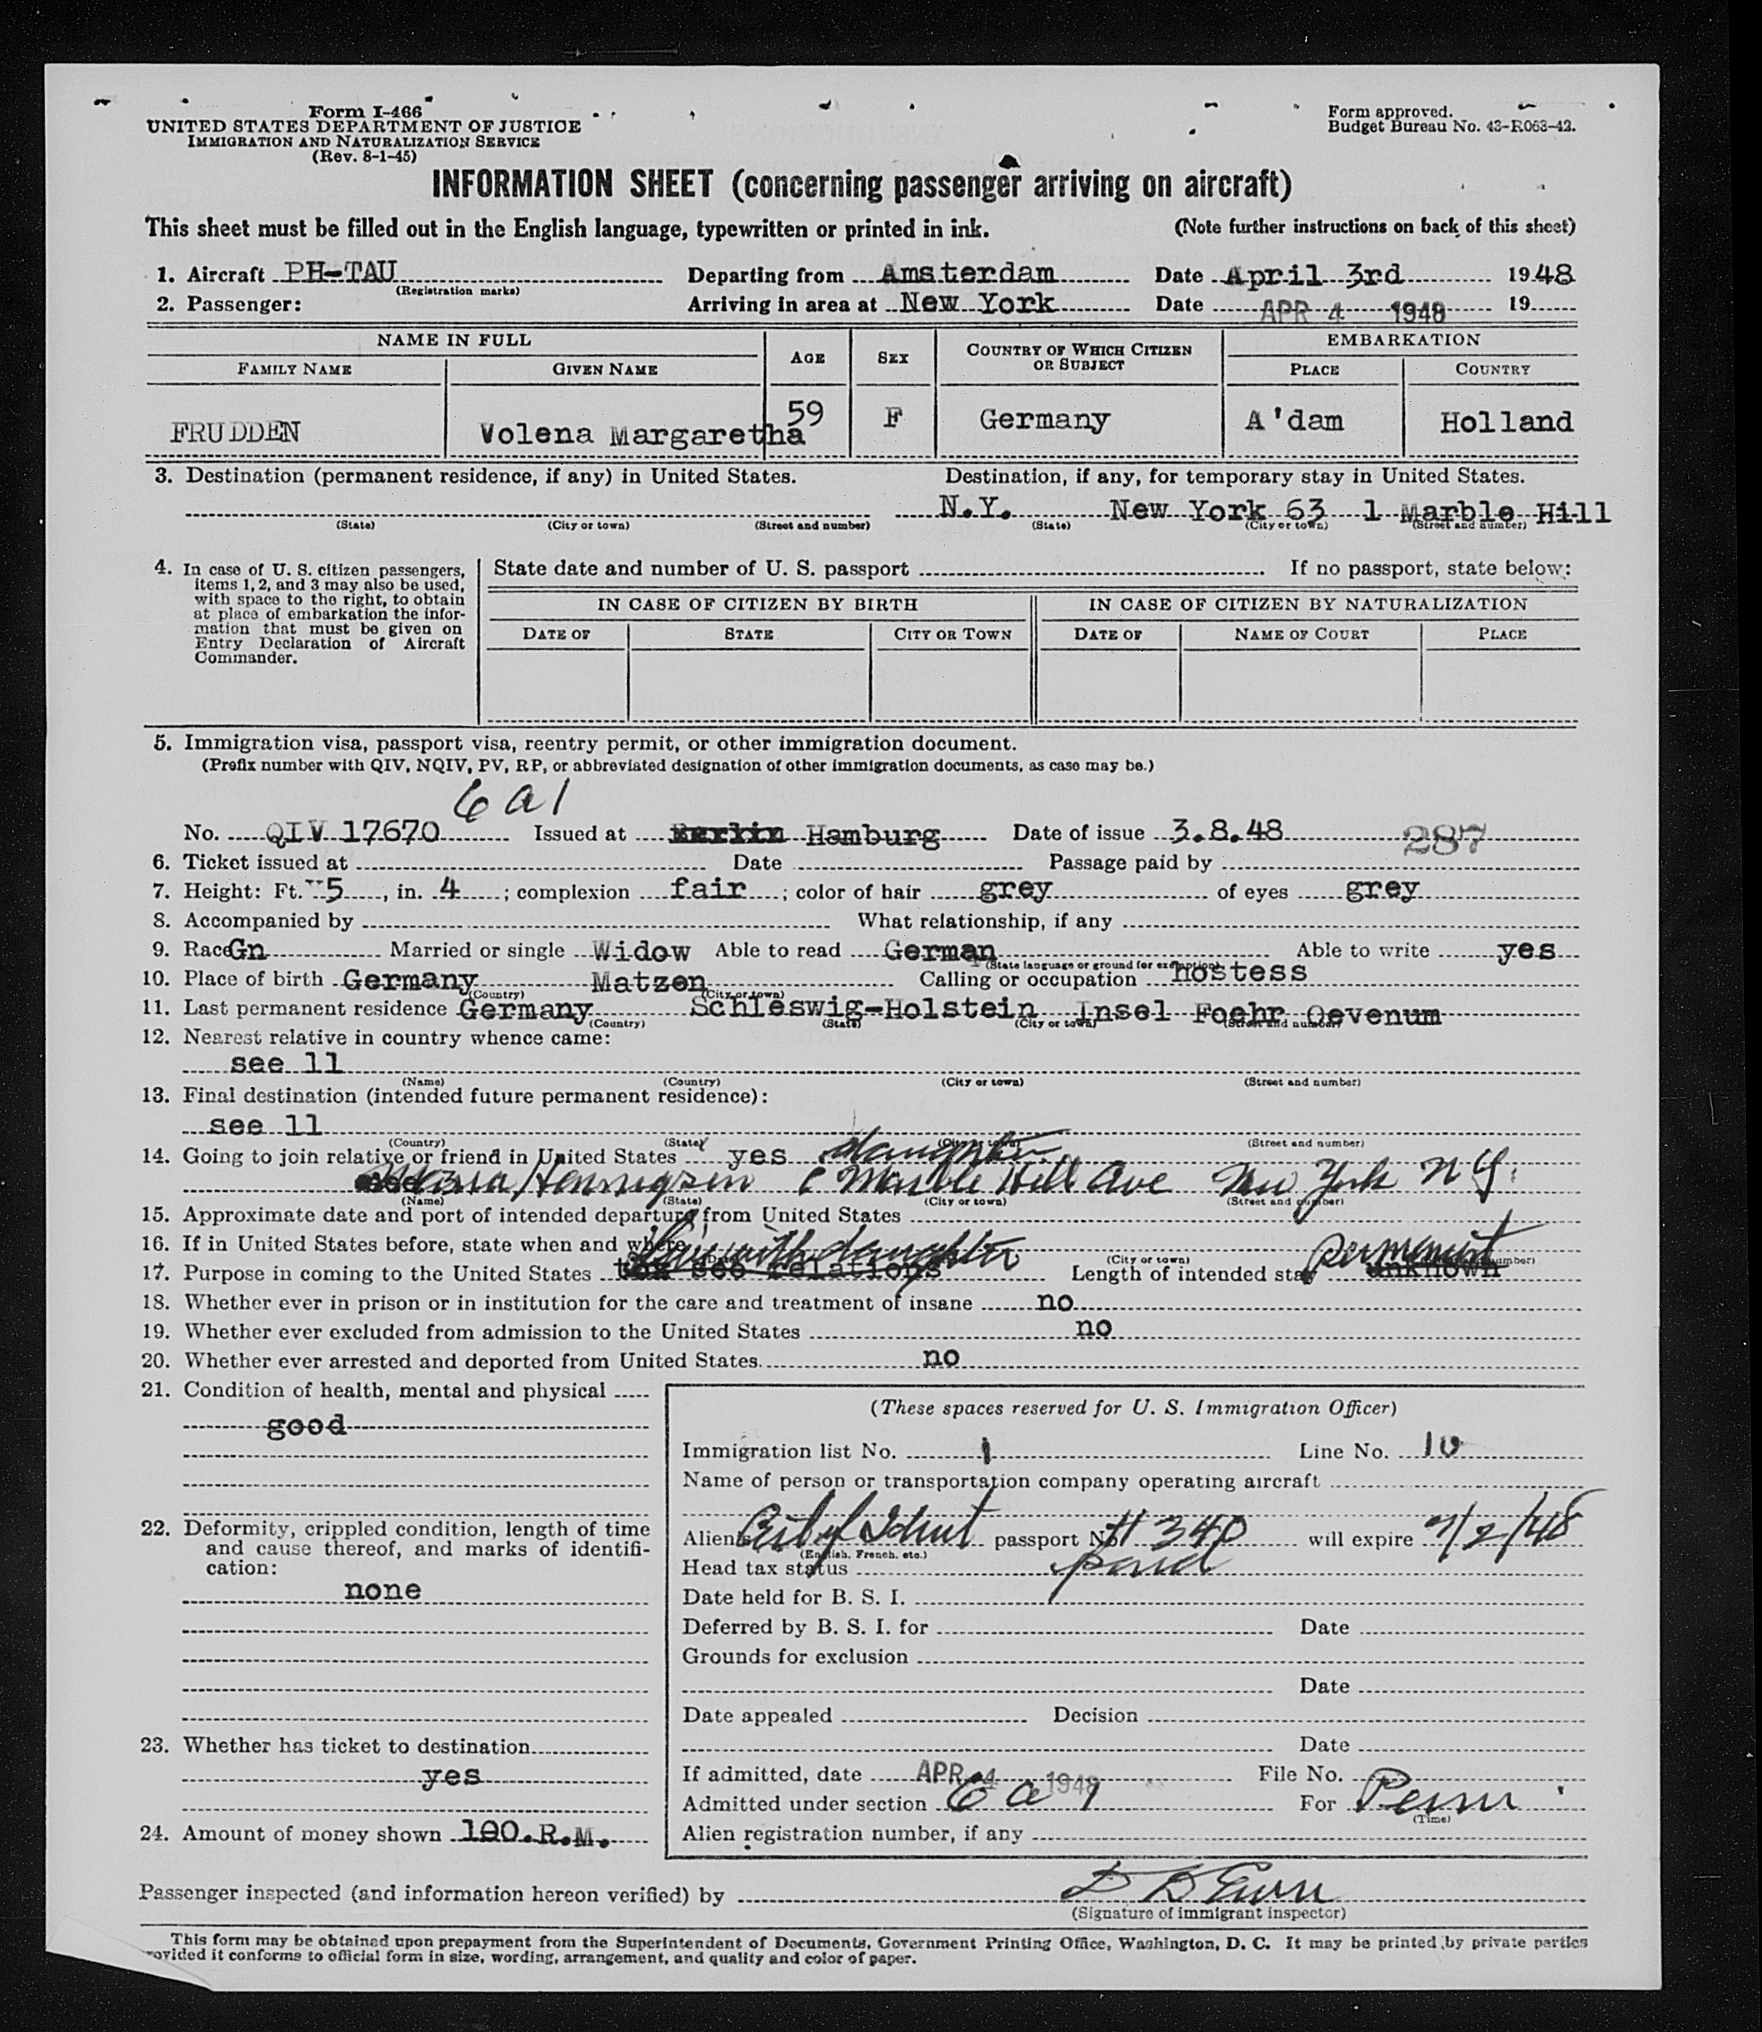 Form I-466
UNITED STATES DEPARTMENT OF JUSTICE
IMMIGRATION AND NATURALIZATION SERVICE
(Rev. 8-1-45)
Form approved.
Budget Bureau No. 43-R063-42.
INFORMATION SHEET (concerning passenger arriving on aircraft)
This sheet must be filled out in the English language, typewritten or printed in ink. (Note further instructions on back of this sheet)
1. Aircraft PH-TAU Departing from Amsterdam Date April 3rd 1948
(Registration marks)
2. Passenger: Arriving in area at New York Date APR 4 1948 19
NAME IN FULL AGE SEX COUNTRY OF WHICH CITIZEN OR SUBJECT EMBARKATION
FAMILY NAME GIVEN NAME PLACE COUNTRY
FRUDDEN Volena Margaretha 59 F Germany A'dam Holland
3. Destination (permanent residence, if any) in United States. Destination, if any, for temporary stay in United States.
N.Y. New York 63 1 Marble Hill
(State) (City or town) (Street and number) (State) (City or town) (Street and number)
4. In case of U. S. citizen passengers, items 1, 2, and 3 may also be used, with space to the right, to obtain at place of embarkation the information that must be given on Entry Declaration of Aircraft Commander.
State date and number of U. S. passport If no passport, state below:
IN CASE OF CITIZEN BY BIRTH IN CASE OF CITIZEN BY NATURALIZATION
DATE OF STATE CITY OR TOWN DATE OF NAME OF COURT PLACE
5. Immigration visa, passport visa, reentry permit, or other immigration document.
(Prefix number with QIV, NQIV, PV, RP, or abbreviated designation of other immigration documents, as case may be.)
6 a 1
No. QIV 17670 Issued at Berlin Hamburg Date of issue 3.8.48 287
6. Ticket issued at Date Passage paid by
7. Height: Ft. 5, in. 4; complexion fair; color of hair grey of eyes grey
8. Accompanied by What relationship, if any
9. Race Gn Married or single Widow Able to read German Able to write yes
(State language or ground for exemption)
10. Place of birth Germany Matzen Calling or occupation hostess
(Country) (City or town)
11. Last permanent residence Germany Schleswig-Holstein Insel Foehr Oevenum
(Country) (State) (City or town) (Street and number)
12. Nearest relative in country whence came:
see 11
(Name) (Country) (City or town) (Street and number)
13. Final destination (intended future permanent residence):
see 11
(Country) (State) (City or town) (Street and number)
14. Going to join relative or friend in United States yes daughter
Marble Hill Ave New York N Y.
(Name) (State) (City or town) (Street and number)
15. Approximate date and port of intended departure from United States
16. If in United States before, state when and where
(City or town)
live with daughter permanent
17. Purpose in coming to the United States see relations Length of intended stay unknown
18. Whether ever in prison or in institution for the care and treatment of insane no
19. Whether ever excluded from admission to the United States no
20. Whether ever arrested and deported from United States. no
21. Condition of health, mental and physical
good
22. Deformity, crippled condition, length of time and cause thereof, and marks of identification:
none
23. Whether has ticket to destination
yes
24. Amount of money shown 100.R.M.
(These spaces reserved for U. S. Immigration Officer)
Immigration list No. 1 Line No. 10
Name of person or transportation company operating aircraft
Alien's passport No. 340 will expire 7/2/48
(English, French, etc.)
Head tax status paid
Date held for B. S. I.
Deferred by B. S. I. for Date
Grounds for exclusion
Date
Date appealed Decision
Date
If admitted, date APR 4 1948 File No.
Admitted under section 6 a 1 For Perm
(Time)
Alien registration number, if any
Passenger inspected (and information hereon verified) by
(Signature of immigrant inspector)
This form may be obtained upon prepayment from the Superintendent of Documents, Government Printing Office, Washington, D. C. It may be printed by private parties
provided it conforms to official form in size, wording, arrangement, and quality and color of paper.